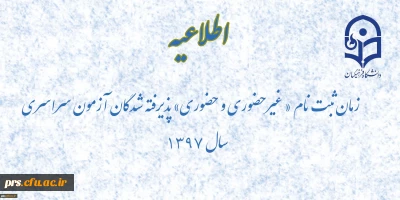 اطلاعیه
دانشگاه فرهنگیان
زمان ثبت نام « غیرحضوری و حضوری» پذیرفته شدگان آزمون سراسری
سال ۱۳۹۷
prs.cfu.ac.ir